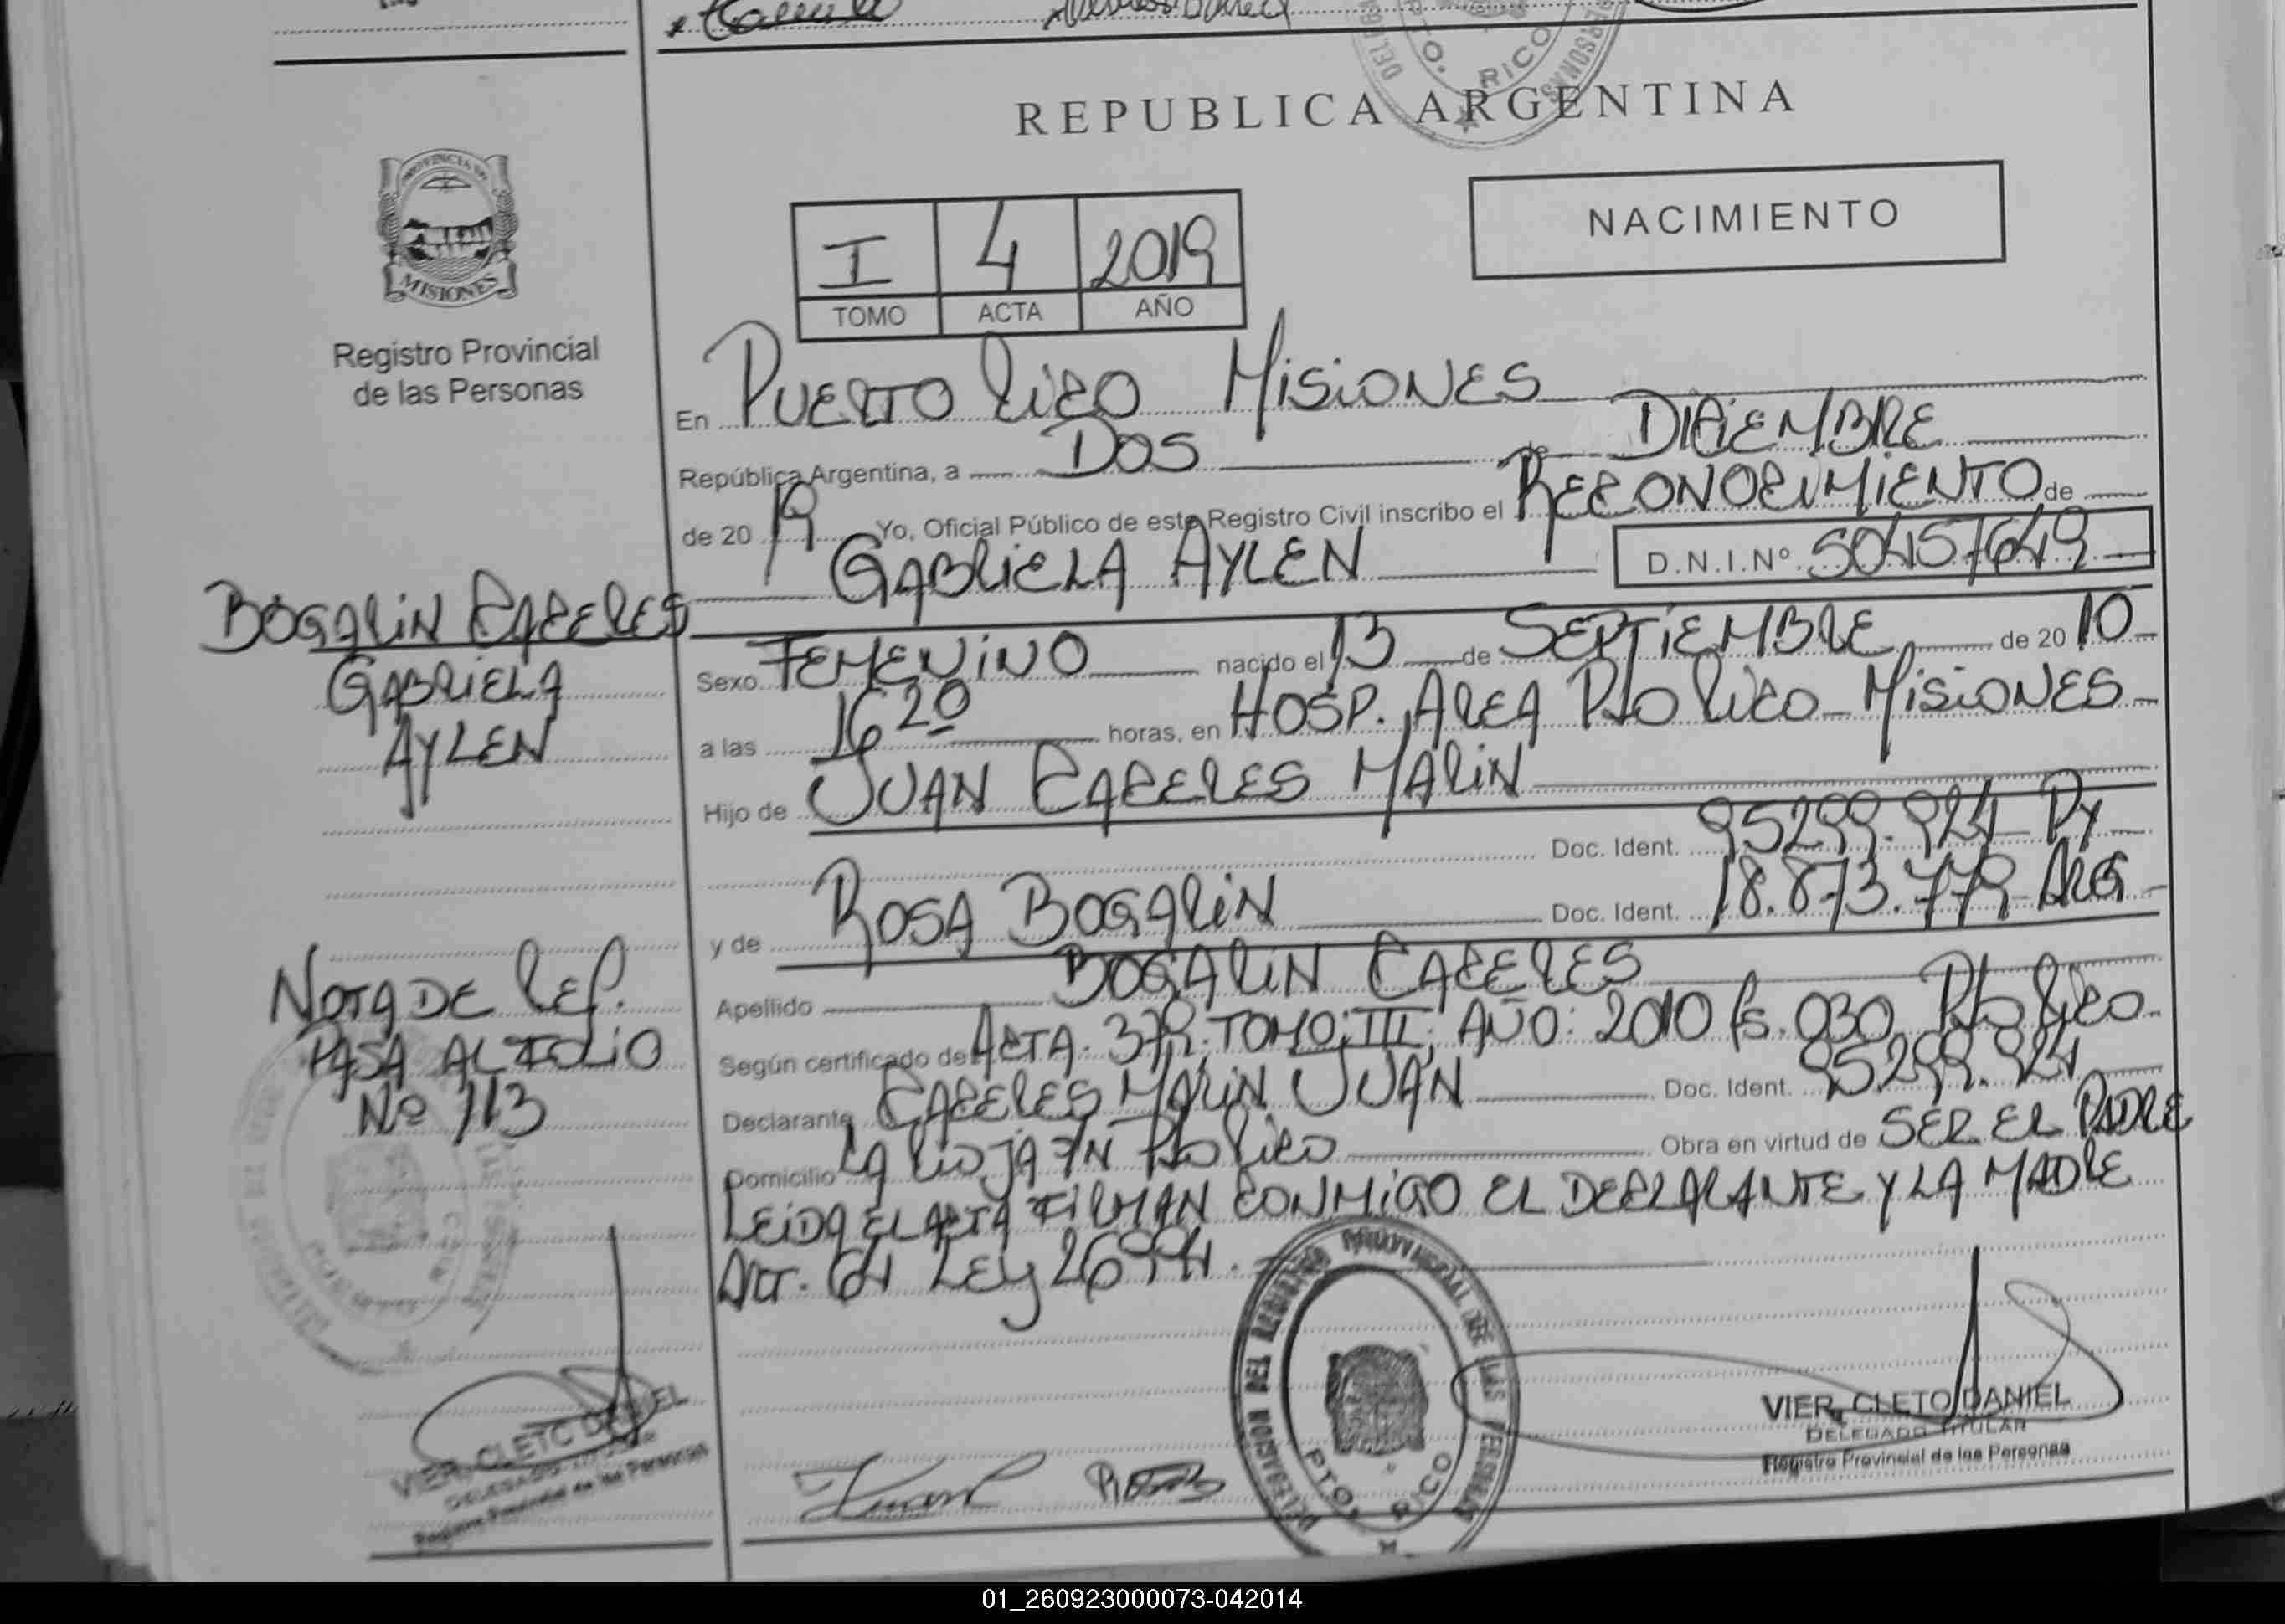 REPUBLICA ARGENTINA
PROVINCIA DE
MISIONES
Registro Provincial
de las Personas
NACIMIENTO
I 4 2019
TOMO ACTA AÑO
En PUERTO RICO MISIONES
República Argentina, a DOS de DICIEMBRE
de 2019 Yo, Oficial Público de este Registro Civil inscribo el RECONOCIMIENTO de
GABRIELA AYLEN D.N.I.Nº 50457649
BOGARIN CACERES
GABRIELA
AYLEN
Sexo FEMENINO nacido el 13 de SEPTIEMBRE de 2010
a las 16 20 horas, en HOSP. AREA PTO RICO MISIONES
Hijo de JUAN CACERES MARIN
Doc. Ident. 95299.924 PY
y de ROSA BOGARIN Doc. Ident. 18.873.779 ARG
Apellido BOGARIN CACERES
Según certificado de ACTA. 379. TOMO: III. AÑO: 2010 fs. 030 PTO RICO
Declarante CACERES MARIN JUAN Doc. Ident. 95299.924
Domicilio LA RIOJA S/N PTO RICO Obra en virtud de SER EL PADRE
LEIDA EL ACTA FIRMAN CONMIGO EL DECLARANTE Y LA MADRE
ART. 64 LEY 26994.
NOTA DE REF.
PASA AL FOLIO
Nº 113
DELEGACION DEL REGISTRO PROVINCIAL DE LAS PERSONAS
PTO. RICO
VIER, CLETO DANIEL
DELEGADO TITULAR
Registro Provincial de las Personas
VIER, CLETO DANIEL
DELEGADO TITULAR
Registro Provincial de las Personas
01_260923000073-042014